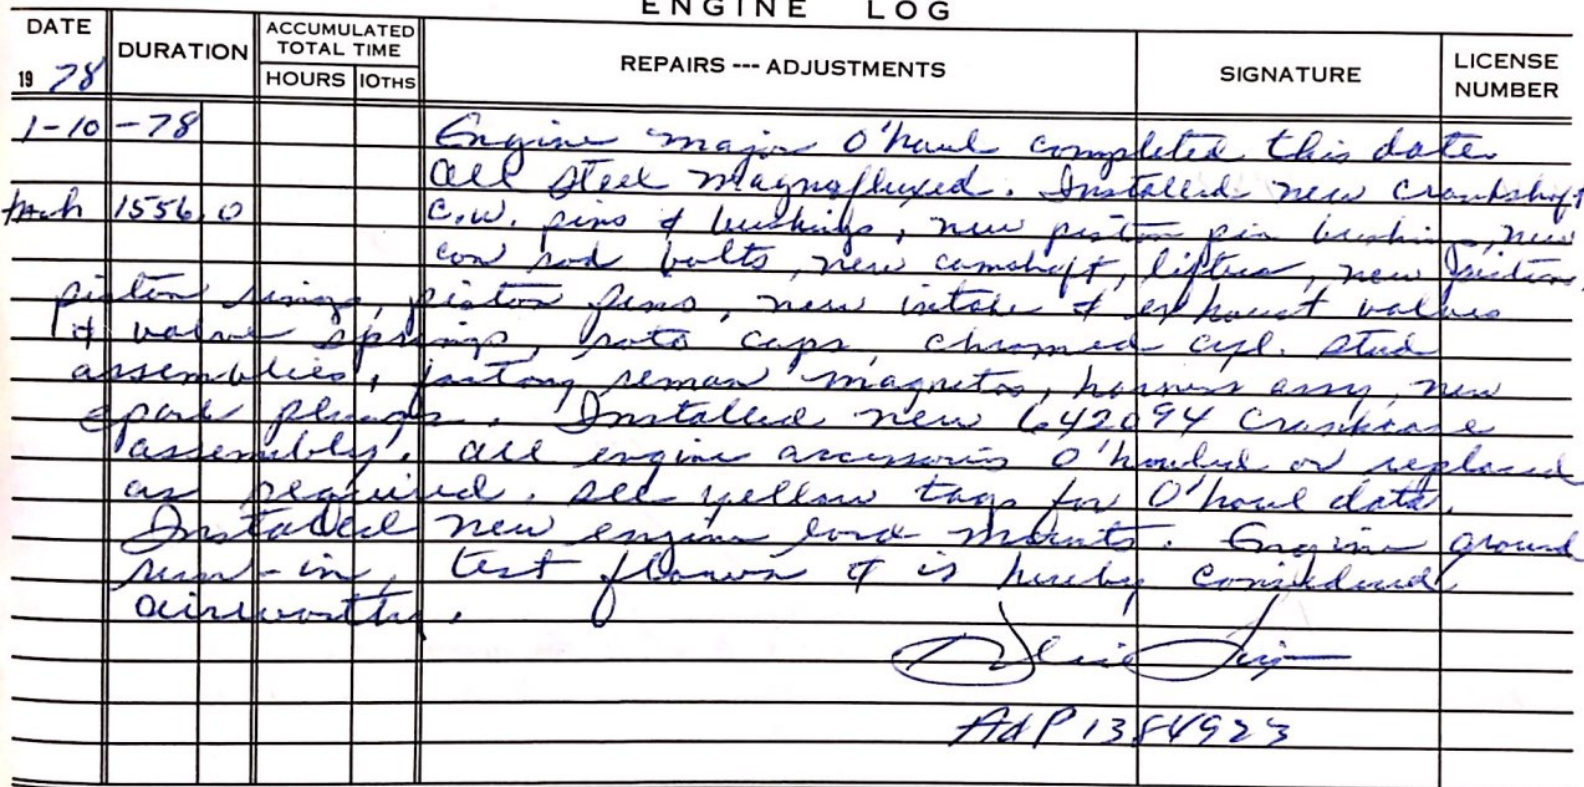 ENGINE LOG
DATE DURATION ACCUMULATED TOTAL TIME REPAIRS --- ADJUSTMENTS SIGNATURE LICENSE NUMBER
19 78 HOURS 10THS
1-10-78 Engine major O'haul completed this date.
All steel magnafluxed. Installed new crankshaft
1556.0 c.w. pins & bushings, new piston pin bushings, new
con rod bolts, new camshaft, lifters, new pistons,
piston rings, piston pins, new intake & exhaust valves
& valve springs, roto caps, chromed cyl. stud
assemblies, factory reman magnetos, harness assy, new
spark plugs. Installed new 642094 Crankcase
assembly. All engine accessories O'hauled or replaced
as required. See yellow tags for O'haul data.
Installed new engine lord mounts. Engine ground
run-in, test flown & is hereby considered
airworthy.
A&P 1384923